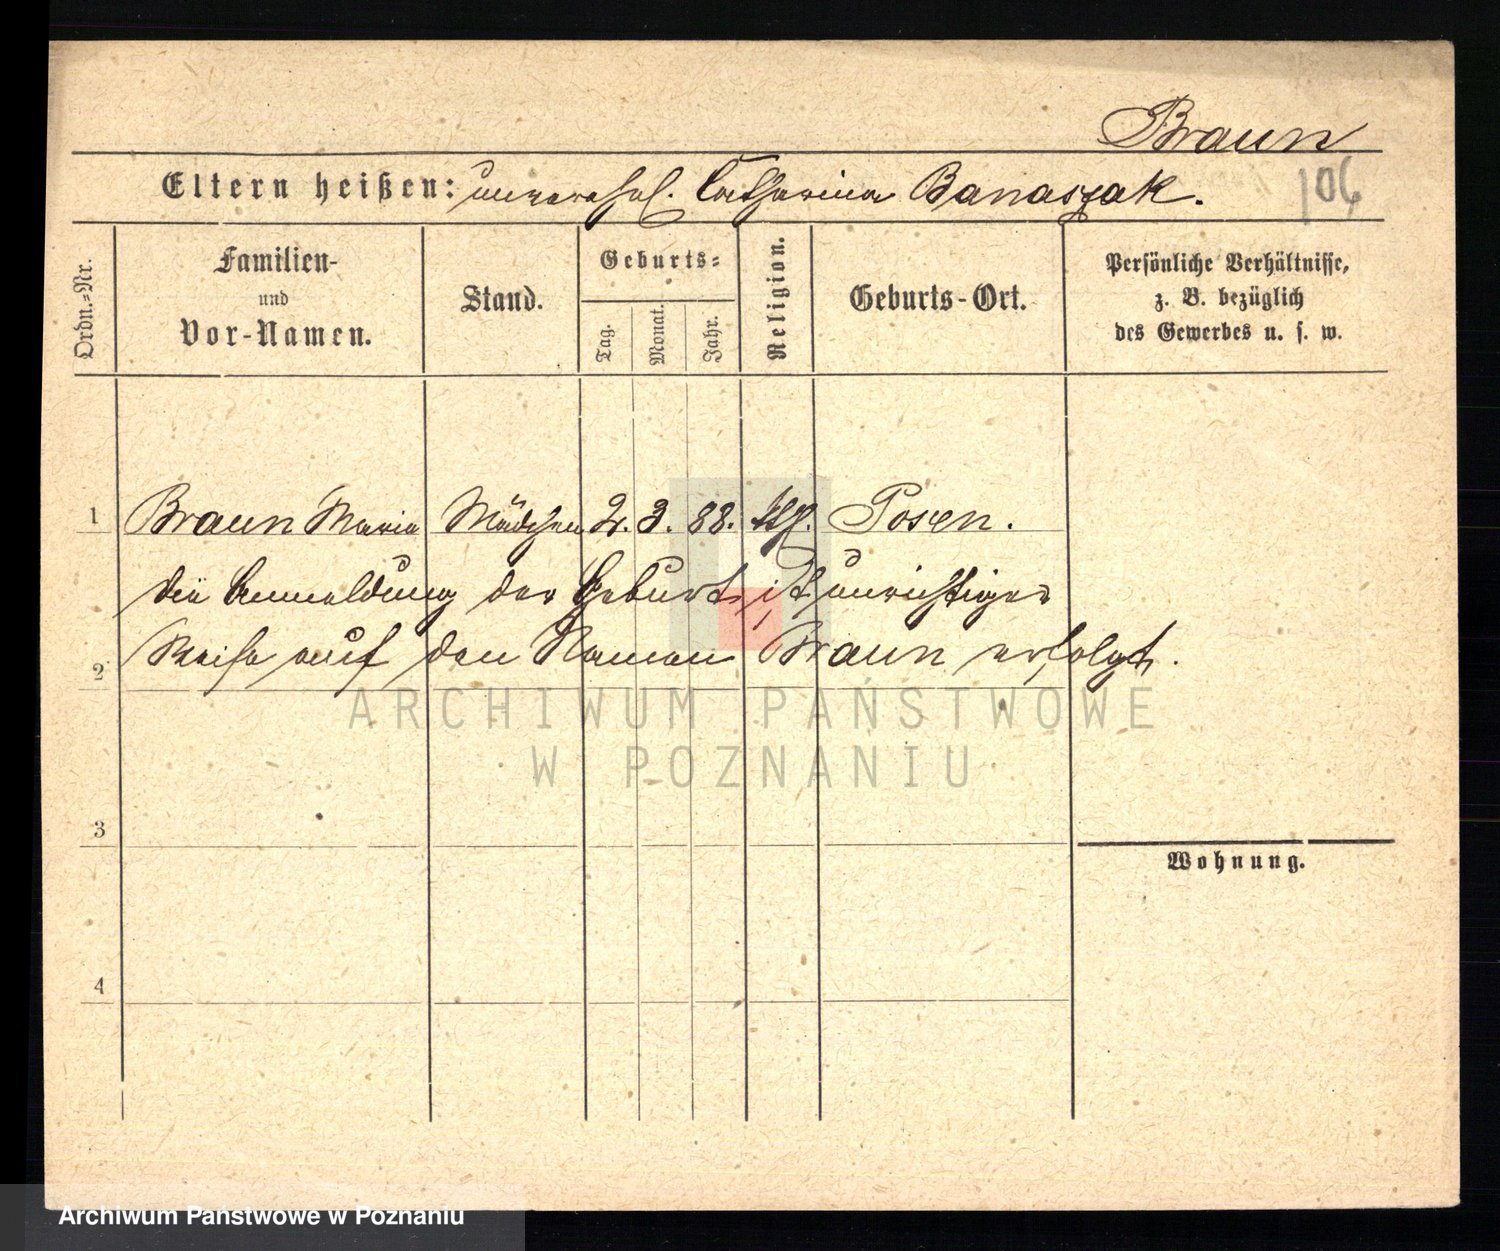 Braun
106
Eltern heißen: unverehel. Catharina Banaszak.
Ordn.=Nr.
Familien-
und
Vor-Namen.
Stand.
Geburts=
Tag.
Monat.
Jahr.
Religion.
Geburts-Ort.
Persönliche Verhältnisse,
z. B. bezüglich
des Gewerbes u. s. w.
1 Braun Maria Mädchen 2. 3. 88. kth. Posen.
die Anmeldung der Geburt ist unrichtiger
2 Weise auf den Namen Braun erfolgt.
ARCHIWUM PAŃSTWOWE
W POZNANIU
3
Wohnung.
4
Archiwum Państwowe w Poznaniu